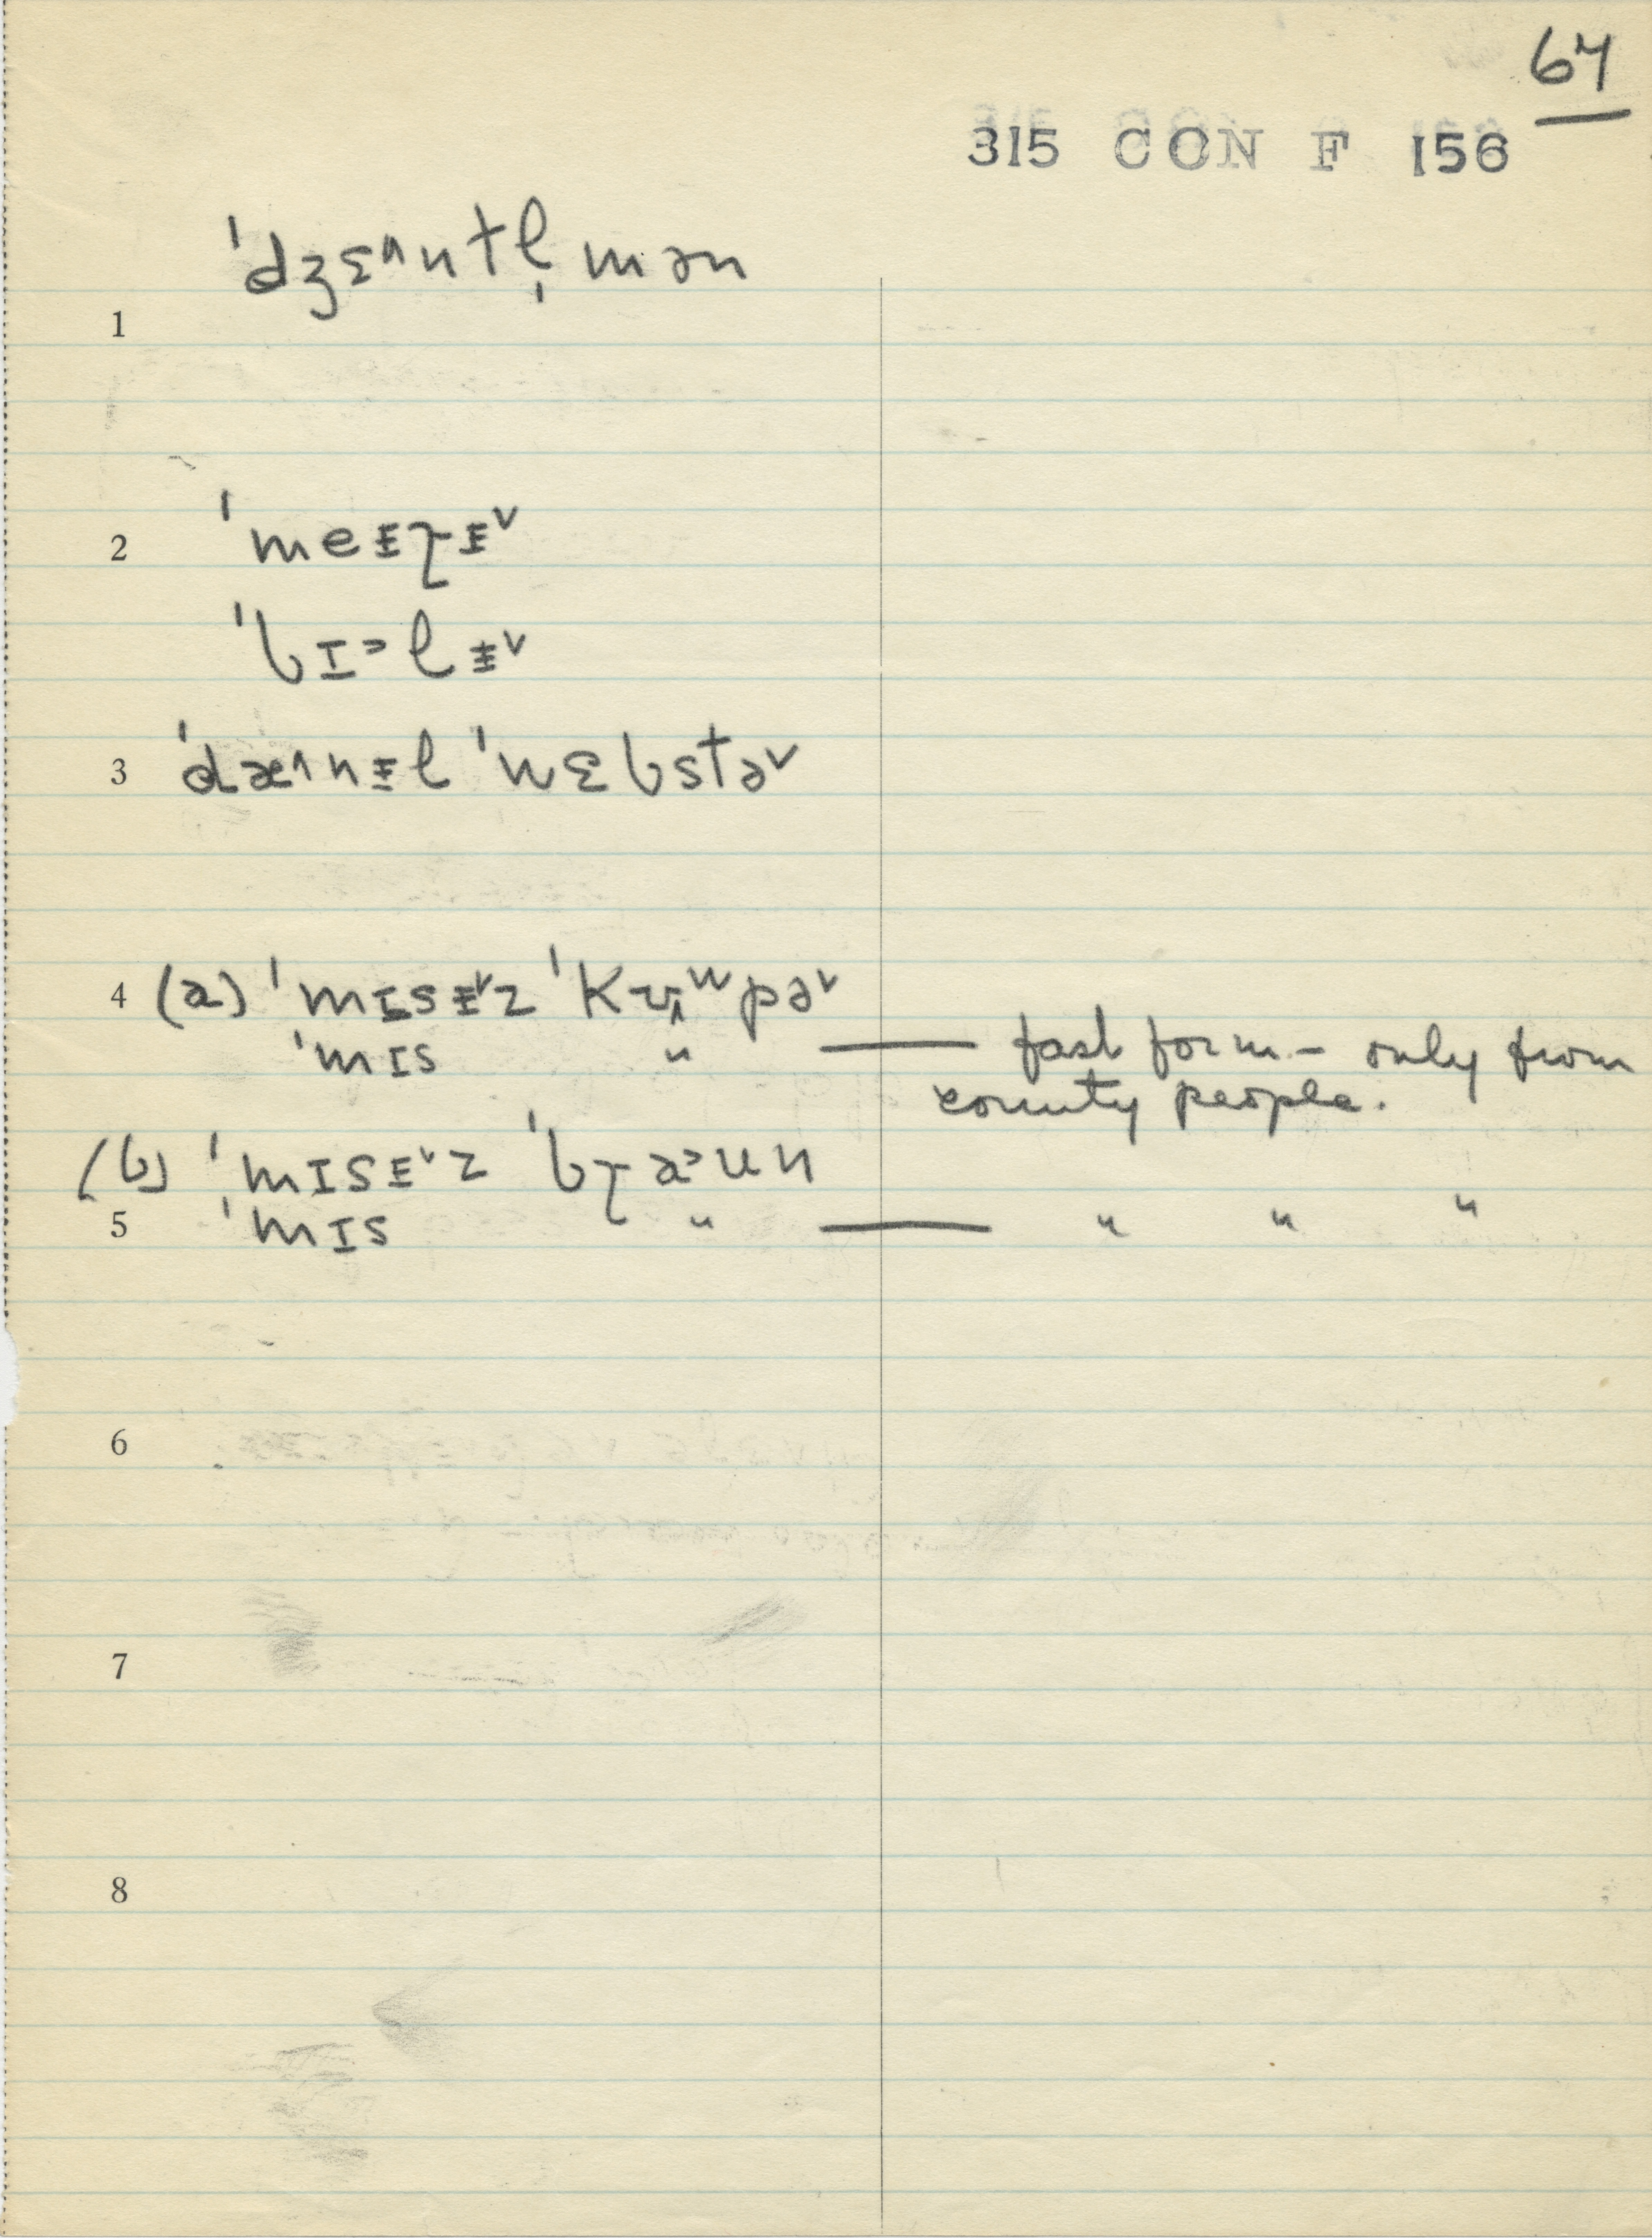 67
315 CON F 156
ˈdʒɛ^n tl̩ mən
1
2 ˈmeᵻɽᵻ˅
ˈbɪ˃lᵻ˅
3 ˈdæ^nᵻl ˈwɛbstə˅
4 (a) ˈmɪsᵻ˅z ˈkʊ^ʷpə˅
ˈmɪs " — fast form - only from
county people.
(b) ˈmɪsᵻ˅z ˈbɽa˃un
5 ˈmɪs " — " " "
6
7
8